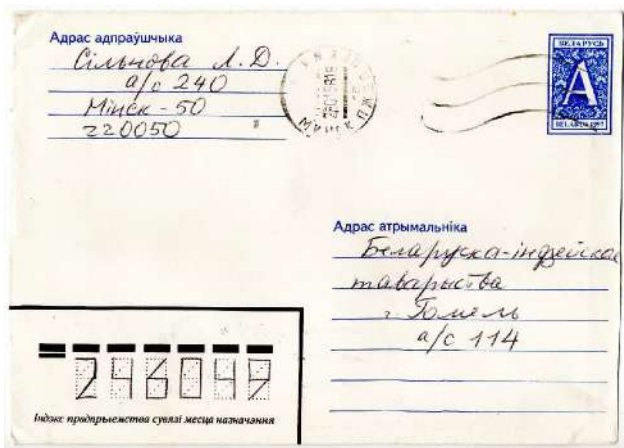 Адрас адпраўшчыка
Сільнова Л. Д.
а/с 240
Мінск - 50
220050
БЕЛАРУСЬ
А
BELARUS 1997
Адрас атрымальніка
Беларуска-індзейскае
таварыства
г. Гомель
а/с 114
246047
Індэкс прадпрыемства сувязі месца назначэння